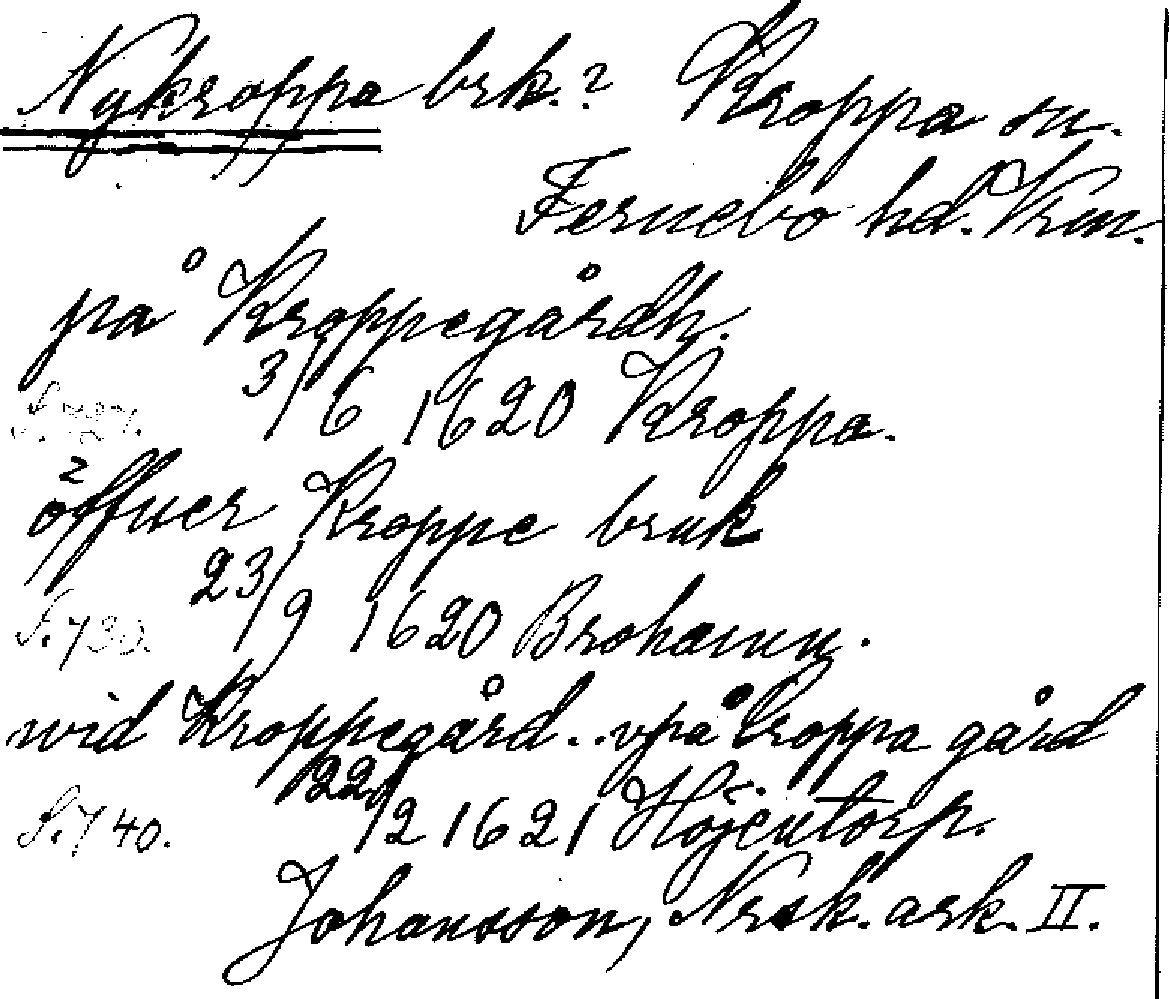 Nykroppa brk.? Kroppa sn.
Fernebo hd. Vrm.
på Kroppegårdh.
S. 727. 3/6 1620 Kroppa.
öffuer Kroppe bruk
S. 730. 23/9 1620 Brohamn.
wid Kroppegård.. vpå kroppa gård
S. 740. 22/12 1621 Höjentorp.
Johansson, Nrsk. ark. II.